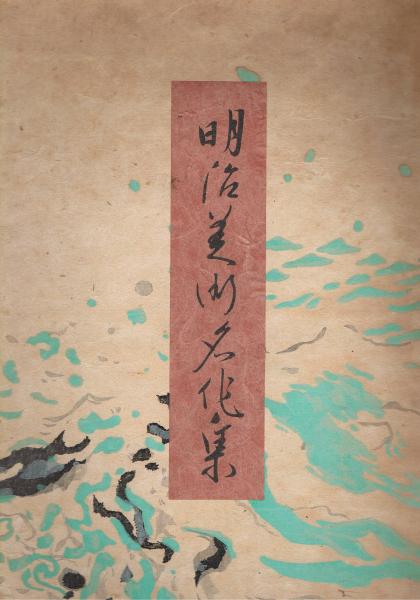 明治美術名作集